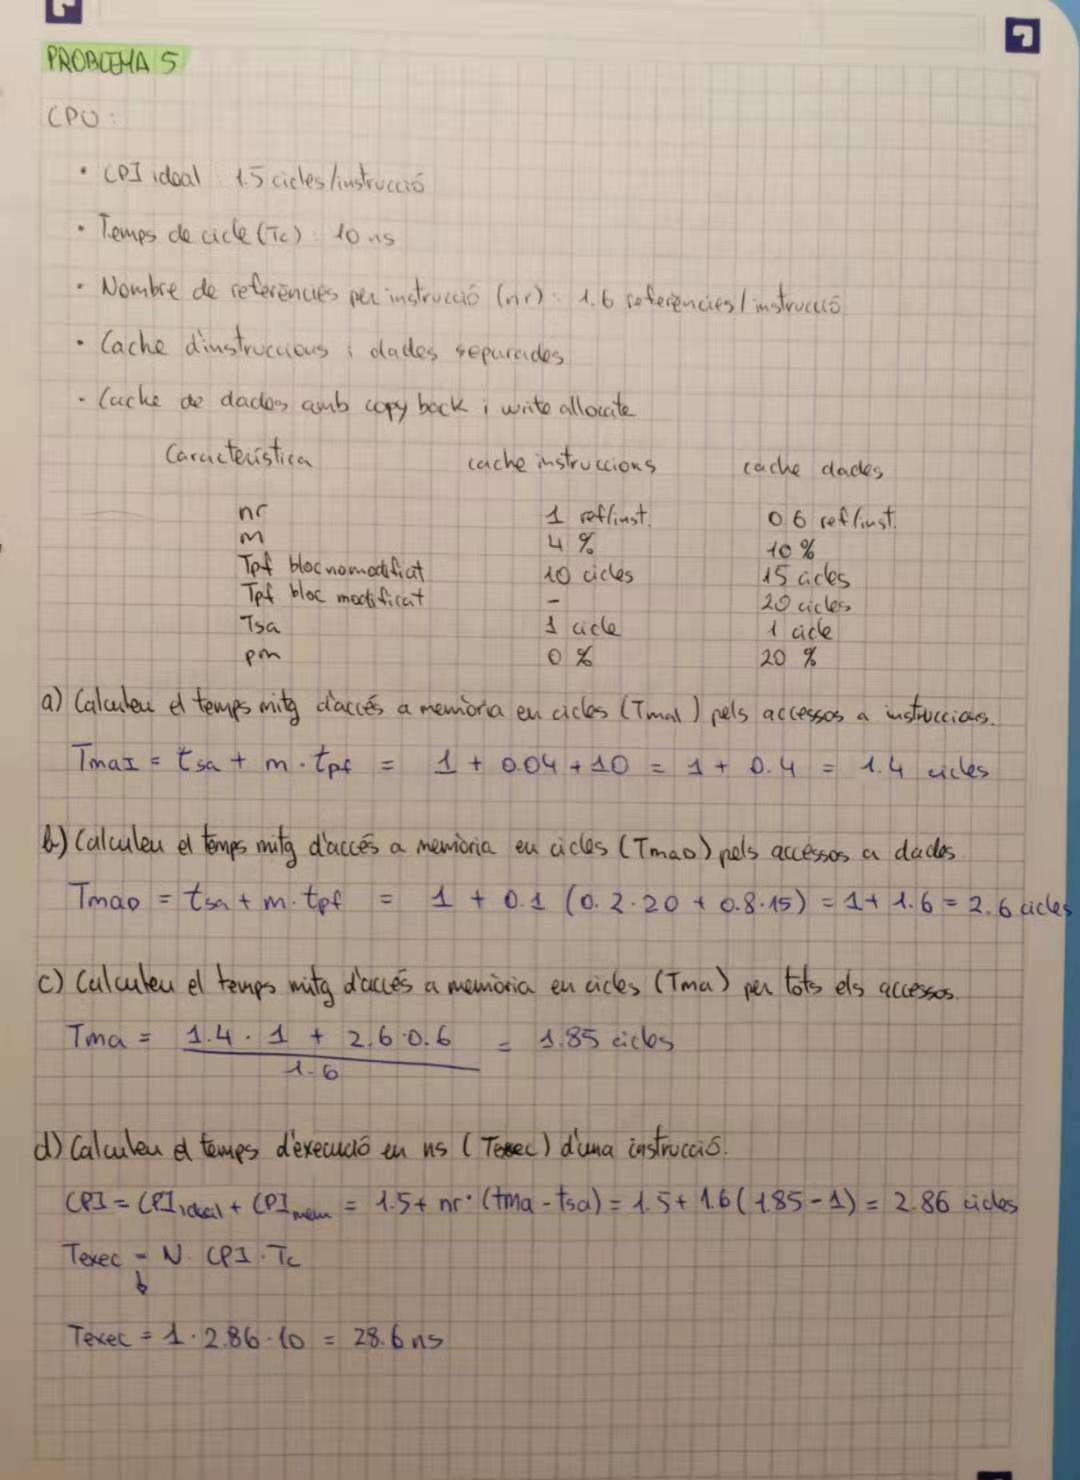 PROBLEMA 5
CPU:
• CPI ideal: 1.5 cicles/instrucció
• Temps de cicle (Tc): 10 ns
• Nombre de referències per instrucció (nr): 1.6 referències/instrucció
• Cache d'instruccions i dades separades
- Cache de dades amb copy back i write allocate
Característica cache instruccions cache dades
nr 1 ref/inst. 0.6 ref/inst.
m 4 % 10 %
Tpf bloc no modificat 10 cicles 15 cicles
Tpf bloc modificat - 20 cicles
Tsa 1 cicle 1 cicle
pm 0 % 20 %
a) Calculeu el temps mitg d'accés a memòria en cicles (TmaI) pels accessos a instruccions.
TmaI = tsa + m · tpf = 1 + 0.04 + 10 = 1 + 0.4 = 1.4 cicles
b) Calculeu el temps mitg d'accés a memòria en cicles (TmaD) pels accessos a dades
TmaD = tsa + m · tpf = 1 + 0.1 (0.2·20 + 0.8·15) = 1 + 1.6 = 2.6 cicles
c) Calculeu el temps mitg d'accés a memòria en cicles (Tma) per tots els accessos.
Tma = 1.4 · 1 + 2.6·0.6 = 1.85 cicles
1.6
d) Calculeu el temps d'execució en ns (Texec) d'una instrucció.
CPI = CPIideal + CPImem = 1.5 + nr · (tma - tsa) = 1.5 + 1.6 (1.85 - 1) = 2.86 cicles
Texec = N · CPI · Tc
Texec = 1 · 2.86 · 10 = 28.6 ns